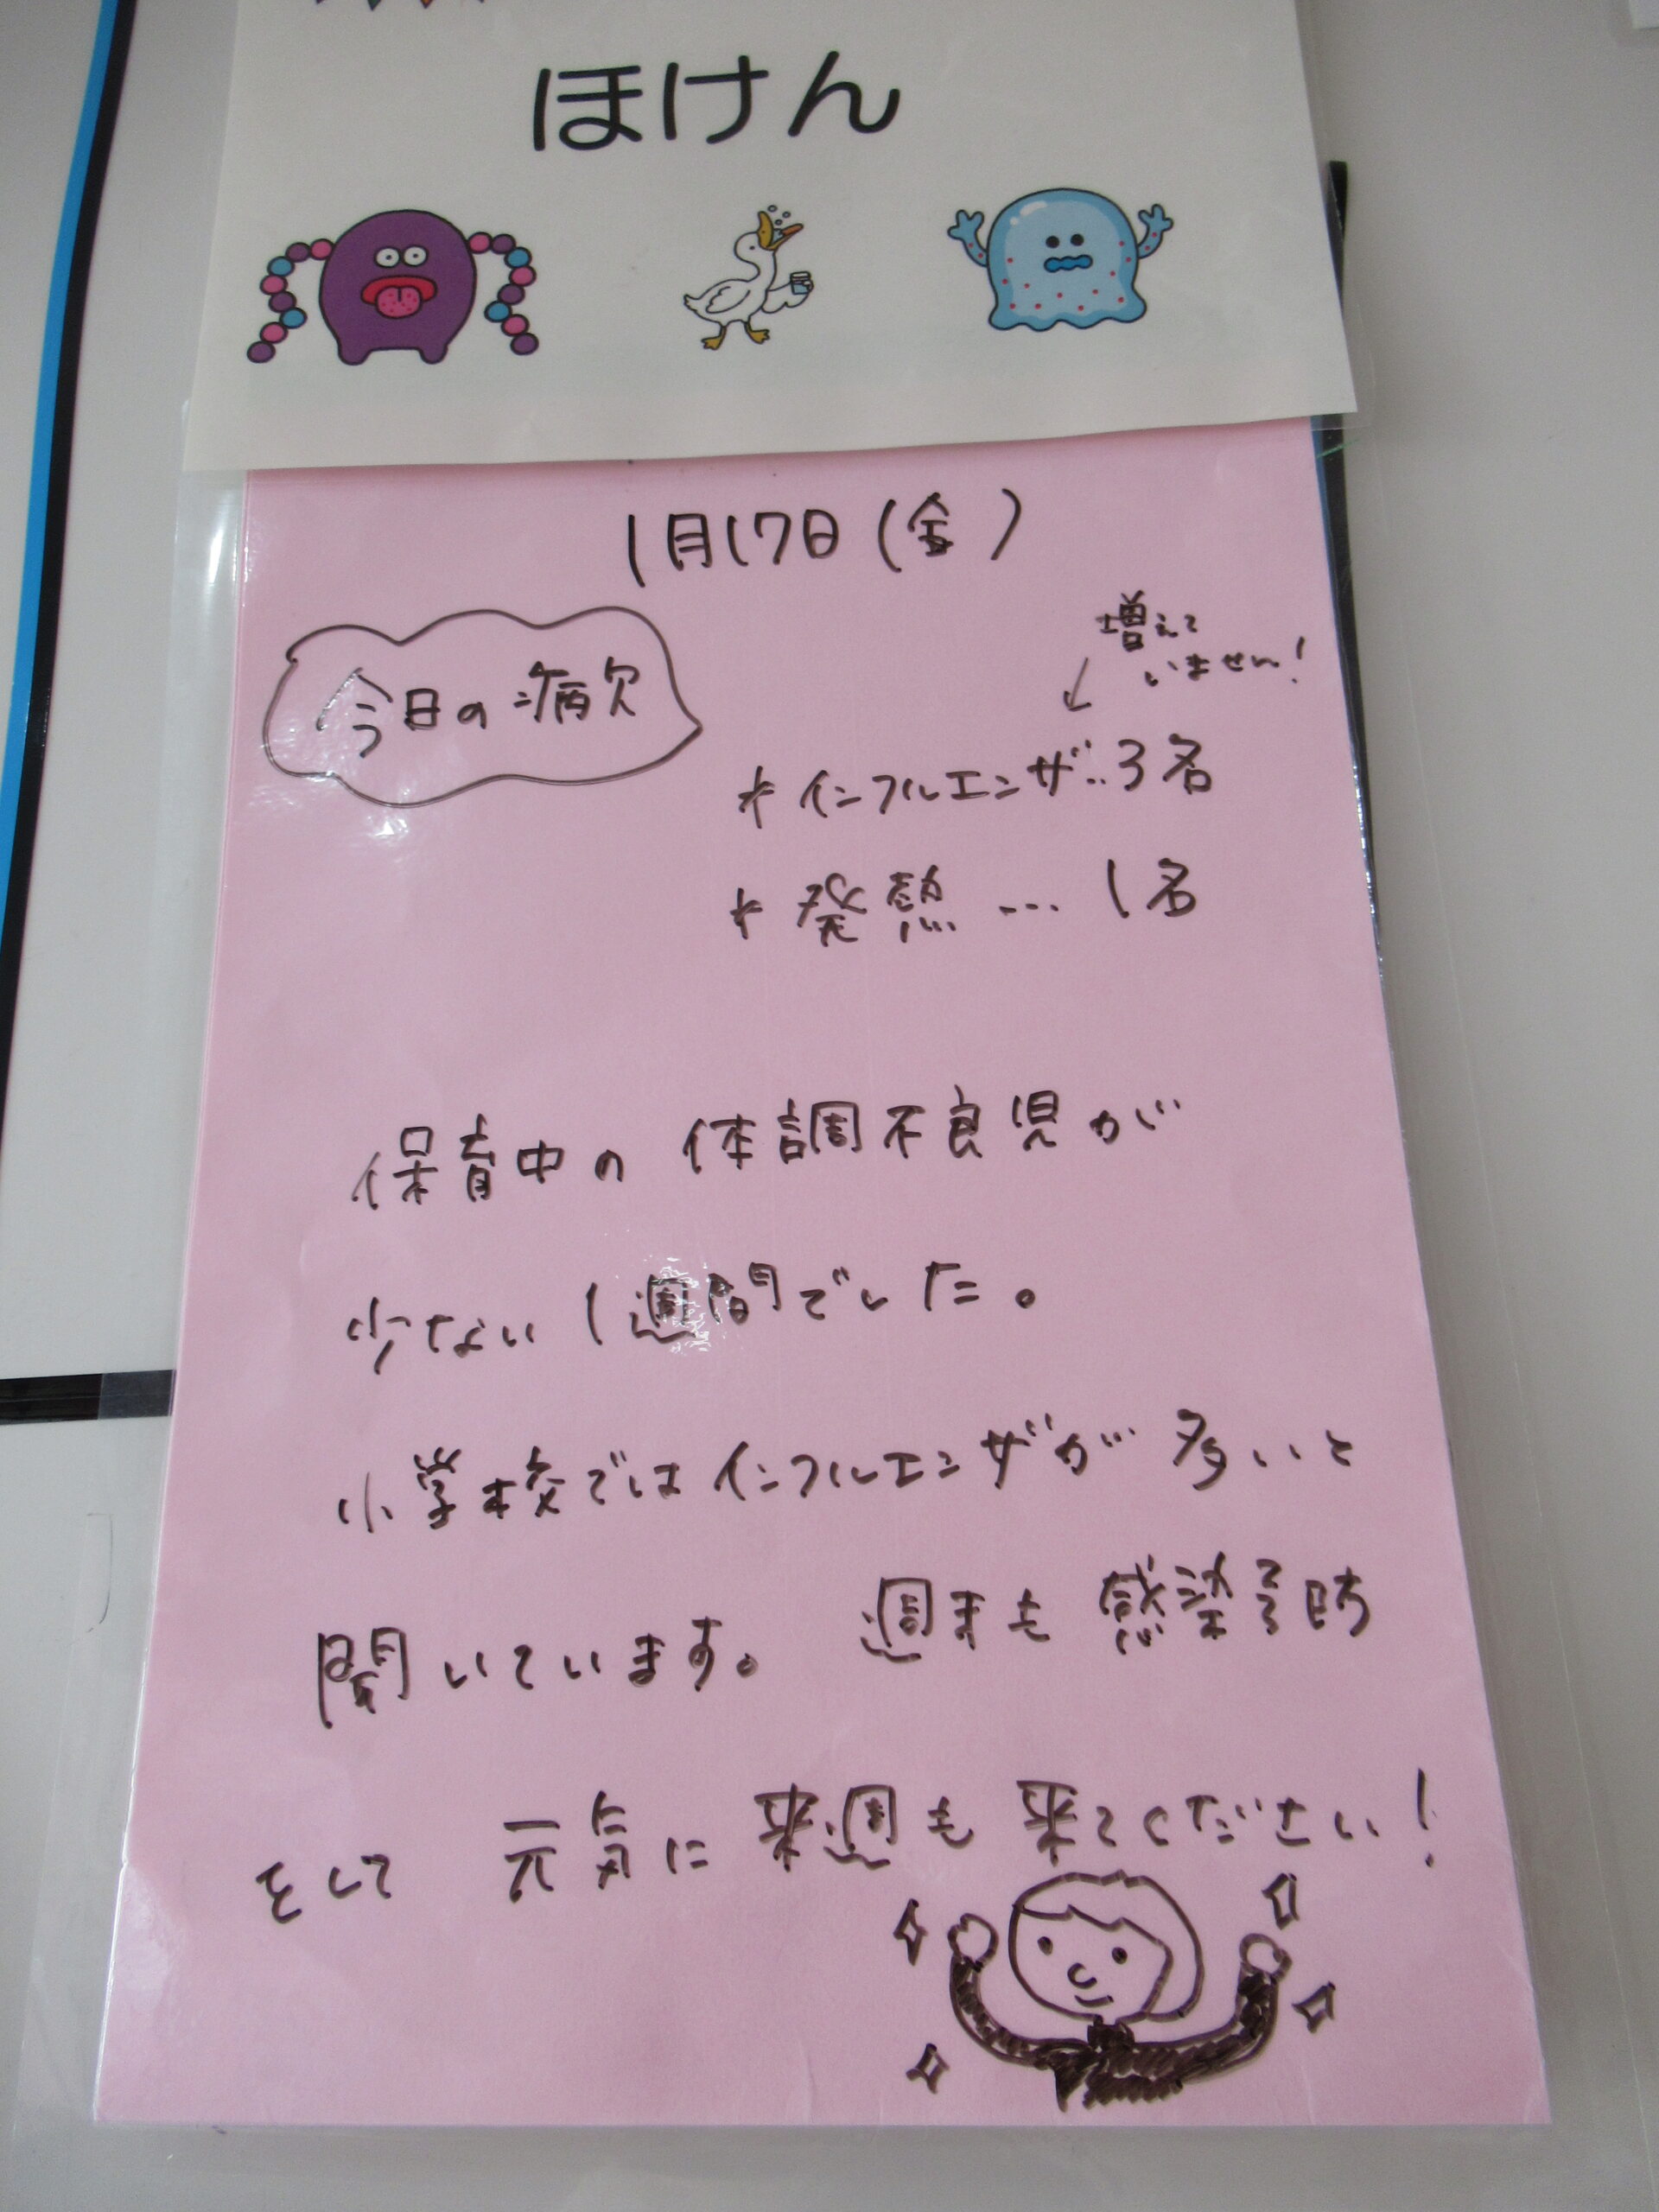 ほけん
1月17日(金)
増えて
いません!
今日の病欠
* インフルエンザ‥3名
* 発熱 … 1名
保育中の体調不良児が
少ない1週間でした。
小学校ではインフルエンザが多いと
聞いています。 週末も感染予防
をして 元気に来週も来てください!